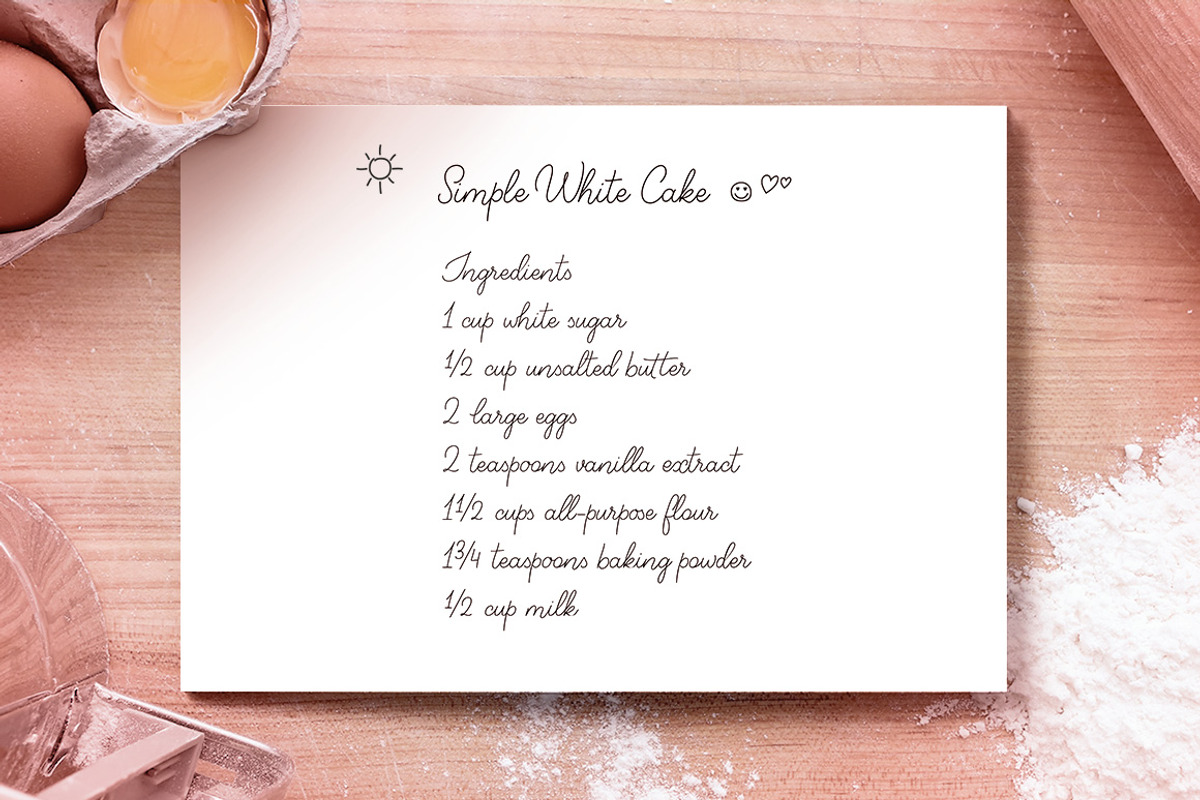 Simple White Cake
Ingredients
1 cup white sugar
1/2 cup unsalted butter
2 large eggs
2 teaspoons vanilla extract
1 1/2 cups all-purpose flour
1 3/4 teaspoons baking powder
1/2 cup milk